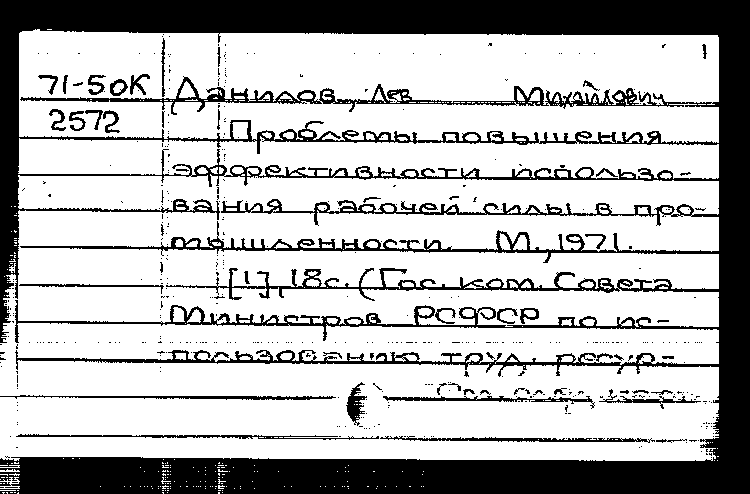 1
71-50К Данилов, Лев Михайлович
2572 Проблемы повышения
эффективности использо-
вания рабочей силы в про-
мышленности. М., 1971.
[1], 18с. (Гос. ком. Совета
Министров РСФСР по ис-
пользованию труд. ресур-
См. след. карт.